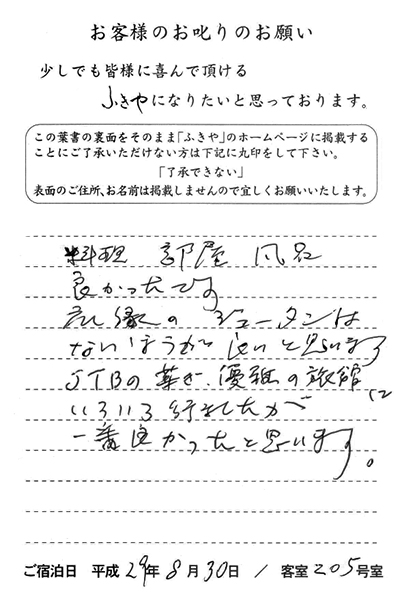 お客様のお叱りのお願い
少しでも皆様に喜んで頂ける
ふきやになりたいと思っております。
この葉書の裏面をそのまま「ふきや」のホームページに掲載する
ことにご了承いただけない方は下記に丸印をして下さい。
「了承できない」
表面のご住所、お名前は掲載しませんので宜しくお願いいたします。
料理 部屋 風呂
良かったです
縁のジュータンは
ないほうが良いと思います
JTBの華ぎ、優雅の旅館に
いろいろ行きましたが
一番良かったと思います。
ご宿泊日 平成29年8月30日 / 客室205号室